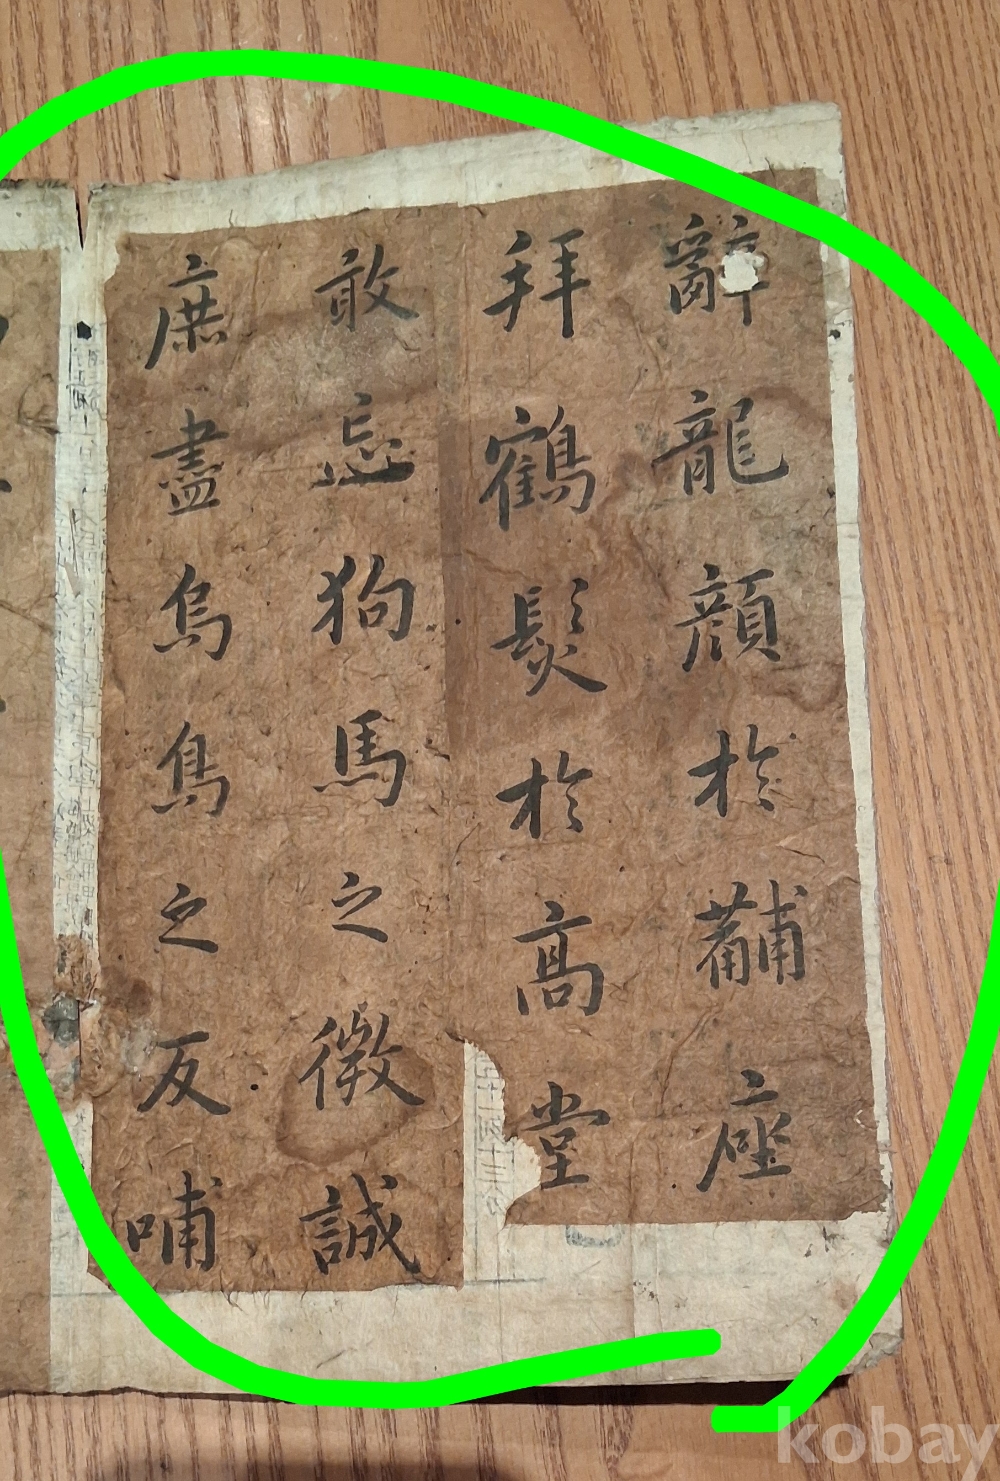 辭龍顔於黼座
拜鶴髮於高堂
敢忘狗馬之微誠
庶盡烏鳥之反哺
kobay